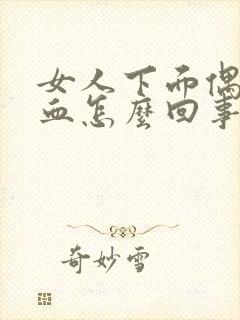 女人下而偶
血怎麼回事
奇妙雪